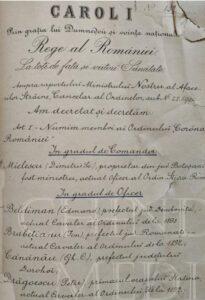 CAROLI
Prin grația lui Dumnezeu și voința națională
Rege al României
La toți de față și viitori Sănătate
Asupra raportului Ministrului Nostru al Aface-
lor Străine, Cancelar al Ordinelor, sub No.
Am decretat și decretăm
Art I - Numim membri ai Ordinului Corona
României
In gradul de Comandor
(Dimitrie), proprietar din jud. Botoșani
fost ministru, actual ofiter al Ordin.
In gradul de Oficer
Beldiman (Edmond) prefectul jud.
actual Cavaler al Ordinului de la
Brabețianu (Ion) prefectul jud. Romanați -
actual Cavaler al Ordinului de la 1892.
Cananău (Gh. C.), prefectul județului
Dorohoi.
Drăgoescu (Petre) primarul orașului
actual Cavaler al Ordinului de la